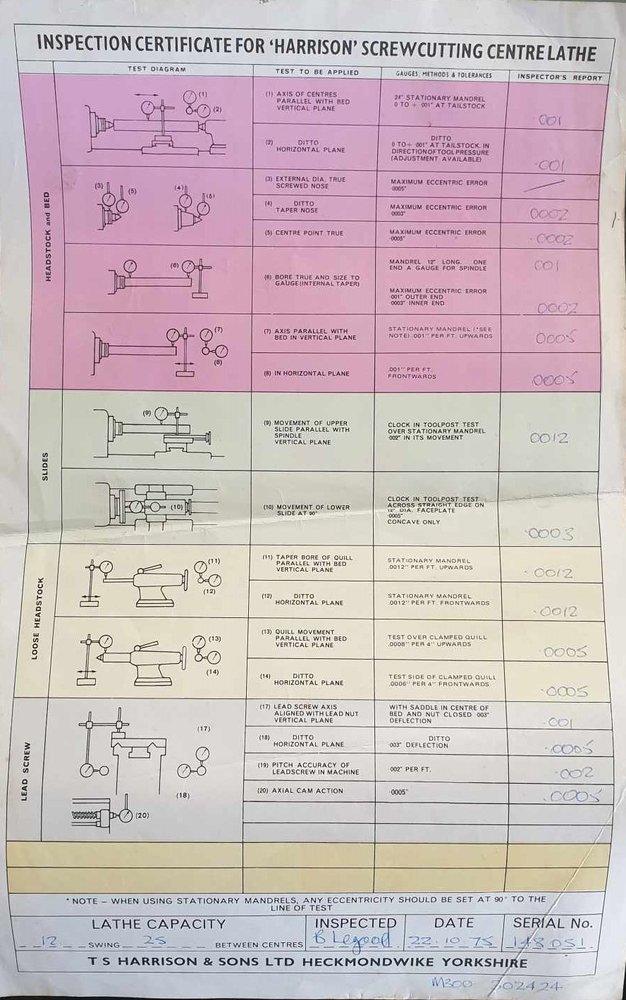 INSPECTION CERTIFICATE FOR 'HARRISON' SCREWCUTTING CENTRE LATHE
TEST DIAGRAM TEST TO BE APPLIED GAUGES, METHODS & TOLERANCES INSPECTOR'S REPORT
HEADSTOCK and BED
(1)
(2)
(1) AXIS OF CENTRES
PARALLEL WITH BED
VERTICAL PLANE
24" STATIONARY MANDREL
0 TO + ·001" AT TAILSTOCK
001
(2) DITTO
HORIZONTAL PLANE
DITTO
0 TO + ·001" AT TAILSTOCK. IN
DIRECTION OF TOOL PRESSURE
(ADJUSTMENT AVAILABLE)
·001
(3) (5) (4) (5)
(3) EXTERNAL DIA. TRUE
SCREWED NOSE
MAXIMUM ECCENTRIC ERROR
·0005"
(4) DITTO
TAPER NOSE
MAXIMUM ECCENTRIC ERROR
·0003"
0002
(5) CENTRE POINT TRUE
MAXIMUM ECCENTRIC ERROR
·0005"
·0002
(6)
(6) BORE TRUE AND SIZE TO
GAUGE (INTERNAL TAPER)
MANDREL 12" LONG. ONE
END A GAUGE FOR SPINDLE
001
MAXIMUM ECCENTRIC ERROR
·001" OUTER END
·0003" INNER END
0002
(7)
(8)
(7) AXIS PARALLEL WITH
BED IN VERTICAL PLANE
STATIONARY MANDREL (*SEE
NOTE) .001" PER FT. UPWARDS
0005
(8) IN HORIZONTAL PLANE
.001" PER FT.
FRONTWARDS
0005
SLIDES
(9)
(9) MOVEMENT OF UPPER
SLIDE PARALLEL WITH
SPINDLE
VERTICAL PLANE
CLOCK IN TOOLPOST TEST
OVER STATIONARY MANDREL
·002" IN ITS MOVEMENT
0012
(10)
(10) MOVEMENT OF LOWER
SLIDE AT 90°
CLOCK IN TOOLPOST TEST
ACROSS STRAIGHT EDGE ON
DIA. FACEPLATE
·0005"
CONCAVE ONLY
·0003
LOOSE HEADSTOCK
(11)
(12)
(11) TAPER BORE OF QUILL
PARALLEL WITH BED
VERTICAL PLANE
STATIONARY MANDREL
.0012" PER FT. UPWARDS
·0012
(12) DITTO
HORIZONTAL PLANE
STATIONARY MANDREL
.0012" PER FT. FRONTWARDS
·0012
(13)
(14)
(13) QUILL MOVEMENT
PARALLEL WITH BED
VERTICAL PLANE
TEST OVER CLAMPED QUILL
.0008" PER 4" UPWARDS
·0005
(14) DITTO
HORIZONTAL PLANE
TEST SIDE OF CLAMPED QUILL
.0006" PER 4" FRONTWARDS
·0005
LEAD SCREW
(17)
(18)
(20)
(17) LEAD SCREW AXIS
ALIGNED WITH LEAD NUT
VERTICAL PLANE
WITH SADDLE IN CENTRE OF
BED AND NUT CLOSED ·003"
DEFLECTION
·001
(18) DITTO
HORIZONTAL PLANE
DITTO
·003" DEFLECTION
·0005
(19) PITCH ACCURACY OF
LEADSCREW IN MACHINE
·002" PER FT.
·002
(20) AXIAL CAM ACTION
·0005"
.0005
* NOTE – WHEN USING STATIONARY MANDRELS, ANY ECCENTRICITY SHOULD BE SET AT 90° TO THE
LINE OF TEST
LATHE CAPACITY INSPECTED DATE SERIAL No.
12 SWING 25 BETWEEN CENTRES B Legood 22.10.75 148051
T S HARRISON & SONS LTD HECKMONDWIKE YORKSHIRE
M300 302424